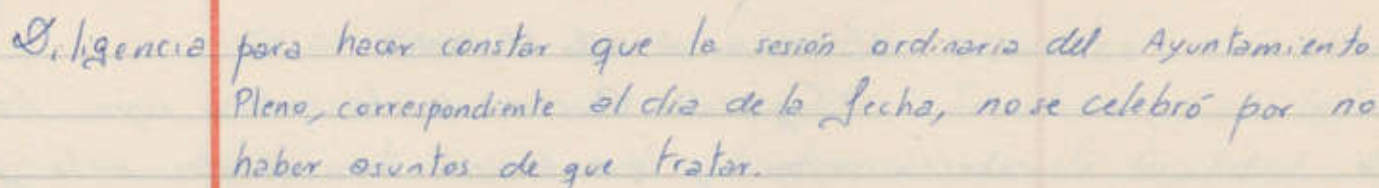 Diligencia para hacer constar que la sesión ordinaria del Ayuntamiento
Pleno, correspondiente al dia de la fecha, no se celebró por no
haber asuntos de que tratar.